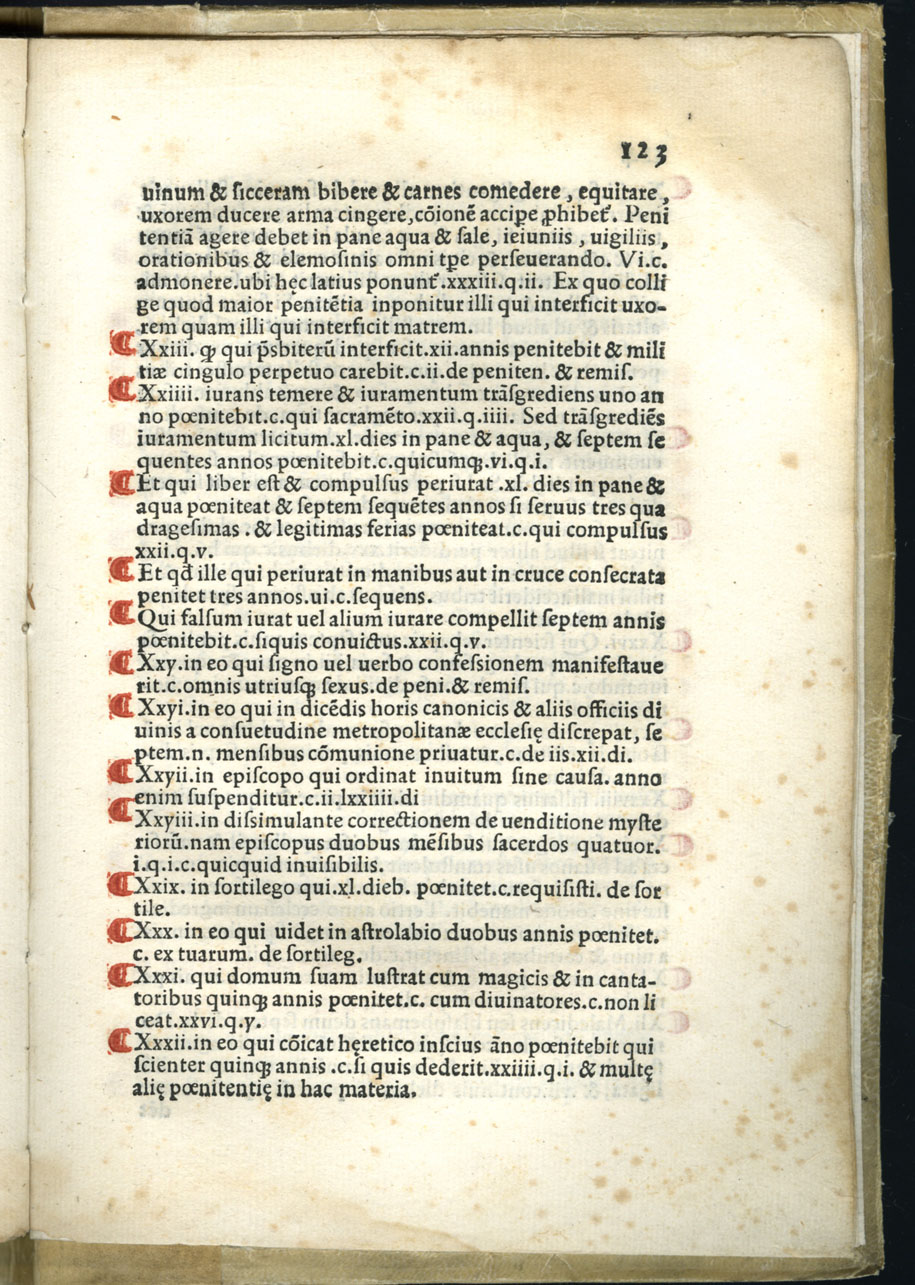 123
uinum & ſicceram bibere & carnes comedere, equitare,
uxorem ducere arma cingere, cōionē accipe ꝓhibet᷑. Peni
tentiā agere debet in pane aqua & ſale, ieiuniis, uigiliis,
orationibus & elemoſinis omni tp̄e perſeuerando. Vi.c.
admonere.ubi hęc latius ponunt᷑.xxxiii.q.ii. Ex quo colli
ge quod maior penitētia inponitur illi qui interficit uxo-
rem quam illi qui interficit matrem.
¶ Xxiii. ꝙ qui p̄sbiterū interficit.xii.annis penitebit & mili
tiæ cingulo perpetuo carebit.c.ii.de peniten. & remiſ.
¶ Xxiiii. iurans temere & iuramentum trāſgrediens uno an
no pœnitebit.c.qui ſacramēto.xxii.q.iiii. Sed trāſgrediēs
iuramentum licitum.xl.dies in pane & aqua, & ſeptem ſe
quentes annos pœnitebit.c.quicumqꝫ.vi.q.i.
¶ Et qui liber eſt & compulſus periurat .xl. dies in pane &
aqua pœniteat & ſeptem ſequētes annos ſi ſeruus tres qua
drageſimas . & legitimas ferias pœniteat.c.qui compulſus
xxii.q.v.
¶ Et qđ ille qui periurat in manibus aut in cruce conſecrata
penitet tres annos.ui.c.ſequens.
¶ Qui falſum iurat uel alium iurare compellit ſeptem annis
pœnitebit.c.ſiquis conuictus.xxii.q.v.
¶ Xxy.in eo qui ſigno uel uerbo confeſſionem manifeſtaue
rit.c.omnis utriuſqꝫ ſexus.de peni.& remiſ.
¶ Xxyi.in eo qui in dicēdis horis canonicis & aliis officiis di
uinis a conſuetudine metropolitanæ eccleſię diſcrepat, ſe
ptem.n. menſibus cōmunione priuatur.c.de iis.xii.di.
¶ Xxyii.in epiſcopo qui ordinat inuitum ſine cauſa. anno
enim ſuſpenditur.c.ii.lxxiiii.di
¶ Xxyiii.in diſſimulante correctionem de uenditione myſte
riorū.nam epiſcopus duobus mēſibus ſacerdos quatuor.
i.q.i.c.quicquid inuiſibilis.
¶ Xxix. in ſortilego qui.xl.dieb. pœnitet.c.requiſiſti. de ſor
tile.
¶ Xxx. in eo qui uidet in aſtrolabio duobus annis pœnitet.
c. ex tuarum. de ſortileg.
¶ Xxxi. qui domum ſuam luſtrat cum magicis & in canta-
toribus quinqꝫ annis pœnitet.c. cum diuinatores.c.non li
ceat.xxvi.q.y.
¶ Xxxii.in eo qui cōicat hęretico inſcius āno pœnitebit qui
ſcienter quinqꝫ annis .c.ſi quis dederit.xxiiii.q.i. & multę
alię pœnitentię in hac materia.